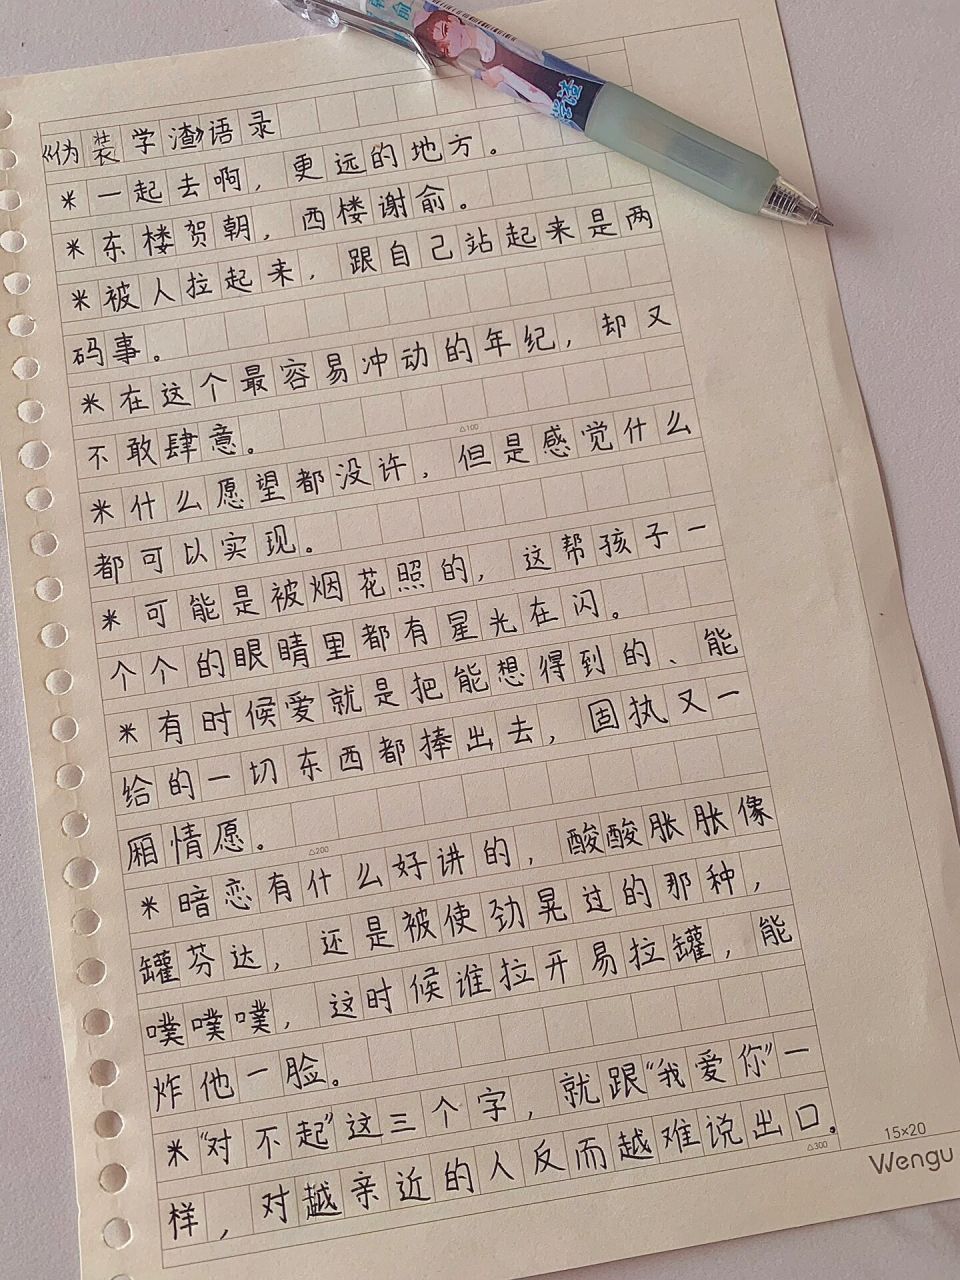 《伪装学渣》语录
*一起去啊，更远的地方。
*东楼贺朝，西楼谢俞。
*被人拉起来，跟自己站起来是两
码事。
*在这个最容易冲动的年纪，却又
不敢肆意。
△100
*什么愿望都没许，但是感觉什么
都可以实现。
*可能是被烟花照的，这帮孩子一
个个的眼睛里都有星光在闪。
*有时候爱就是把能想得到的、能
给的一切东西都捧出去，固执又一
厢情愿。
△200
*暗恋有什么好讲的，酸酸胀胀像
罐芬达，还是被使劲晃过的那种，
噗噗噗，这时候谁拉开易拉罐，能
炸他一脸。
*“对不起”这三个字，就跟“我爱你”一
样，对越亲近的人反而越难说出口。
△300
15×20
Wengu